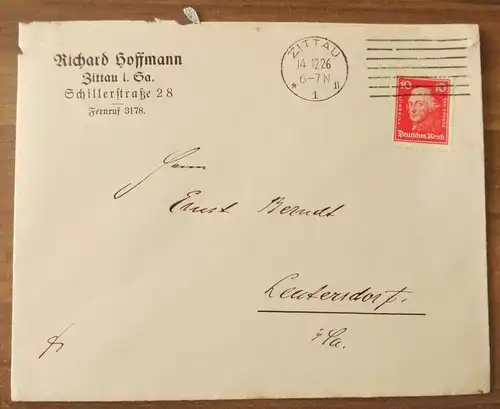 Richard Hoffmann
Zittau i. Sa.
Schillerstraße 28
Fernruf 3178.
ZITTAU
14 12 26
6-7 N
* 1 II
10 10
Deutsches Reich
Herrn
Ernst Berndt
Leutersdorf.
i/Sa.